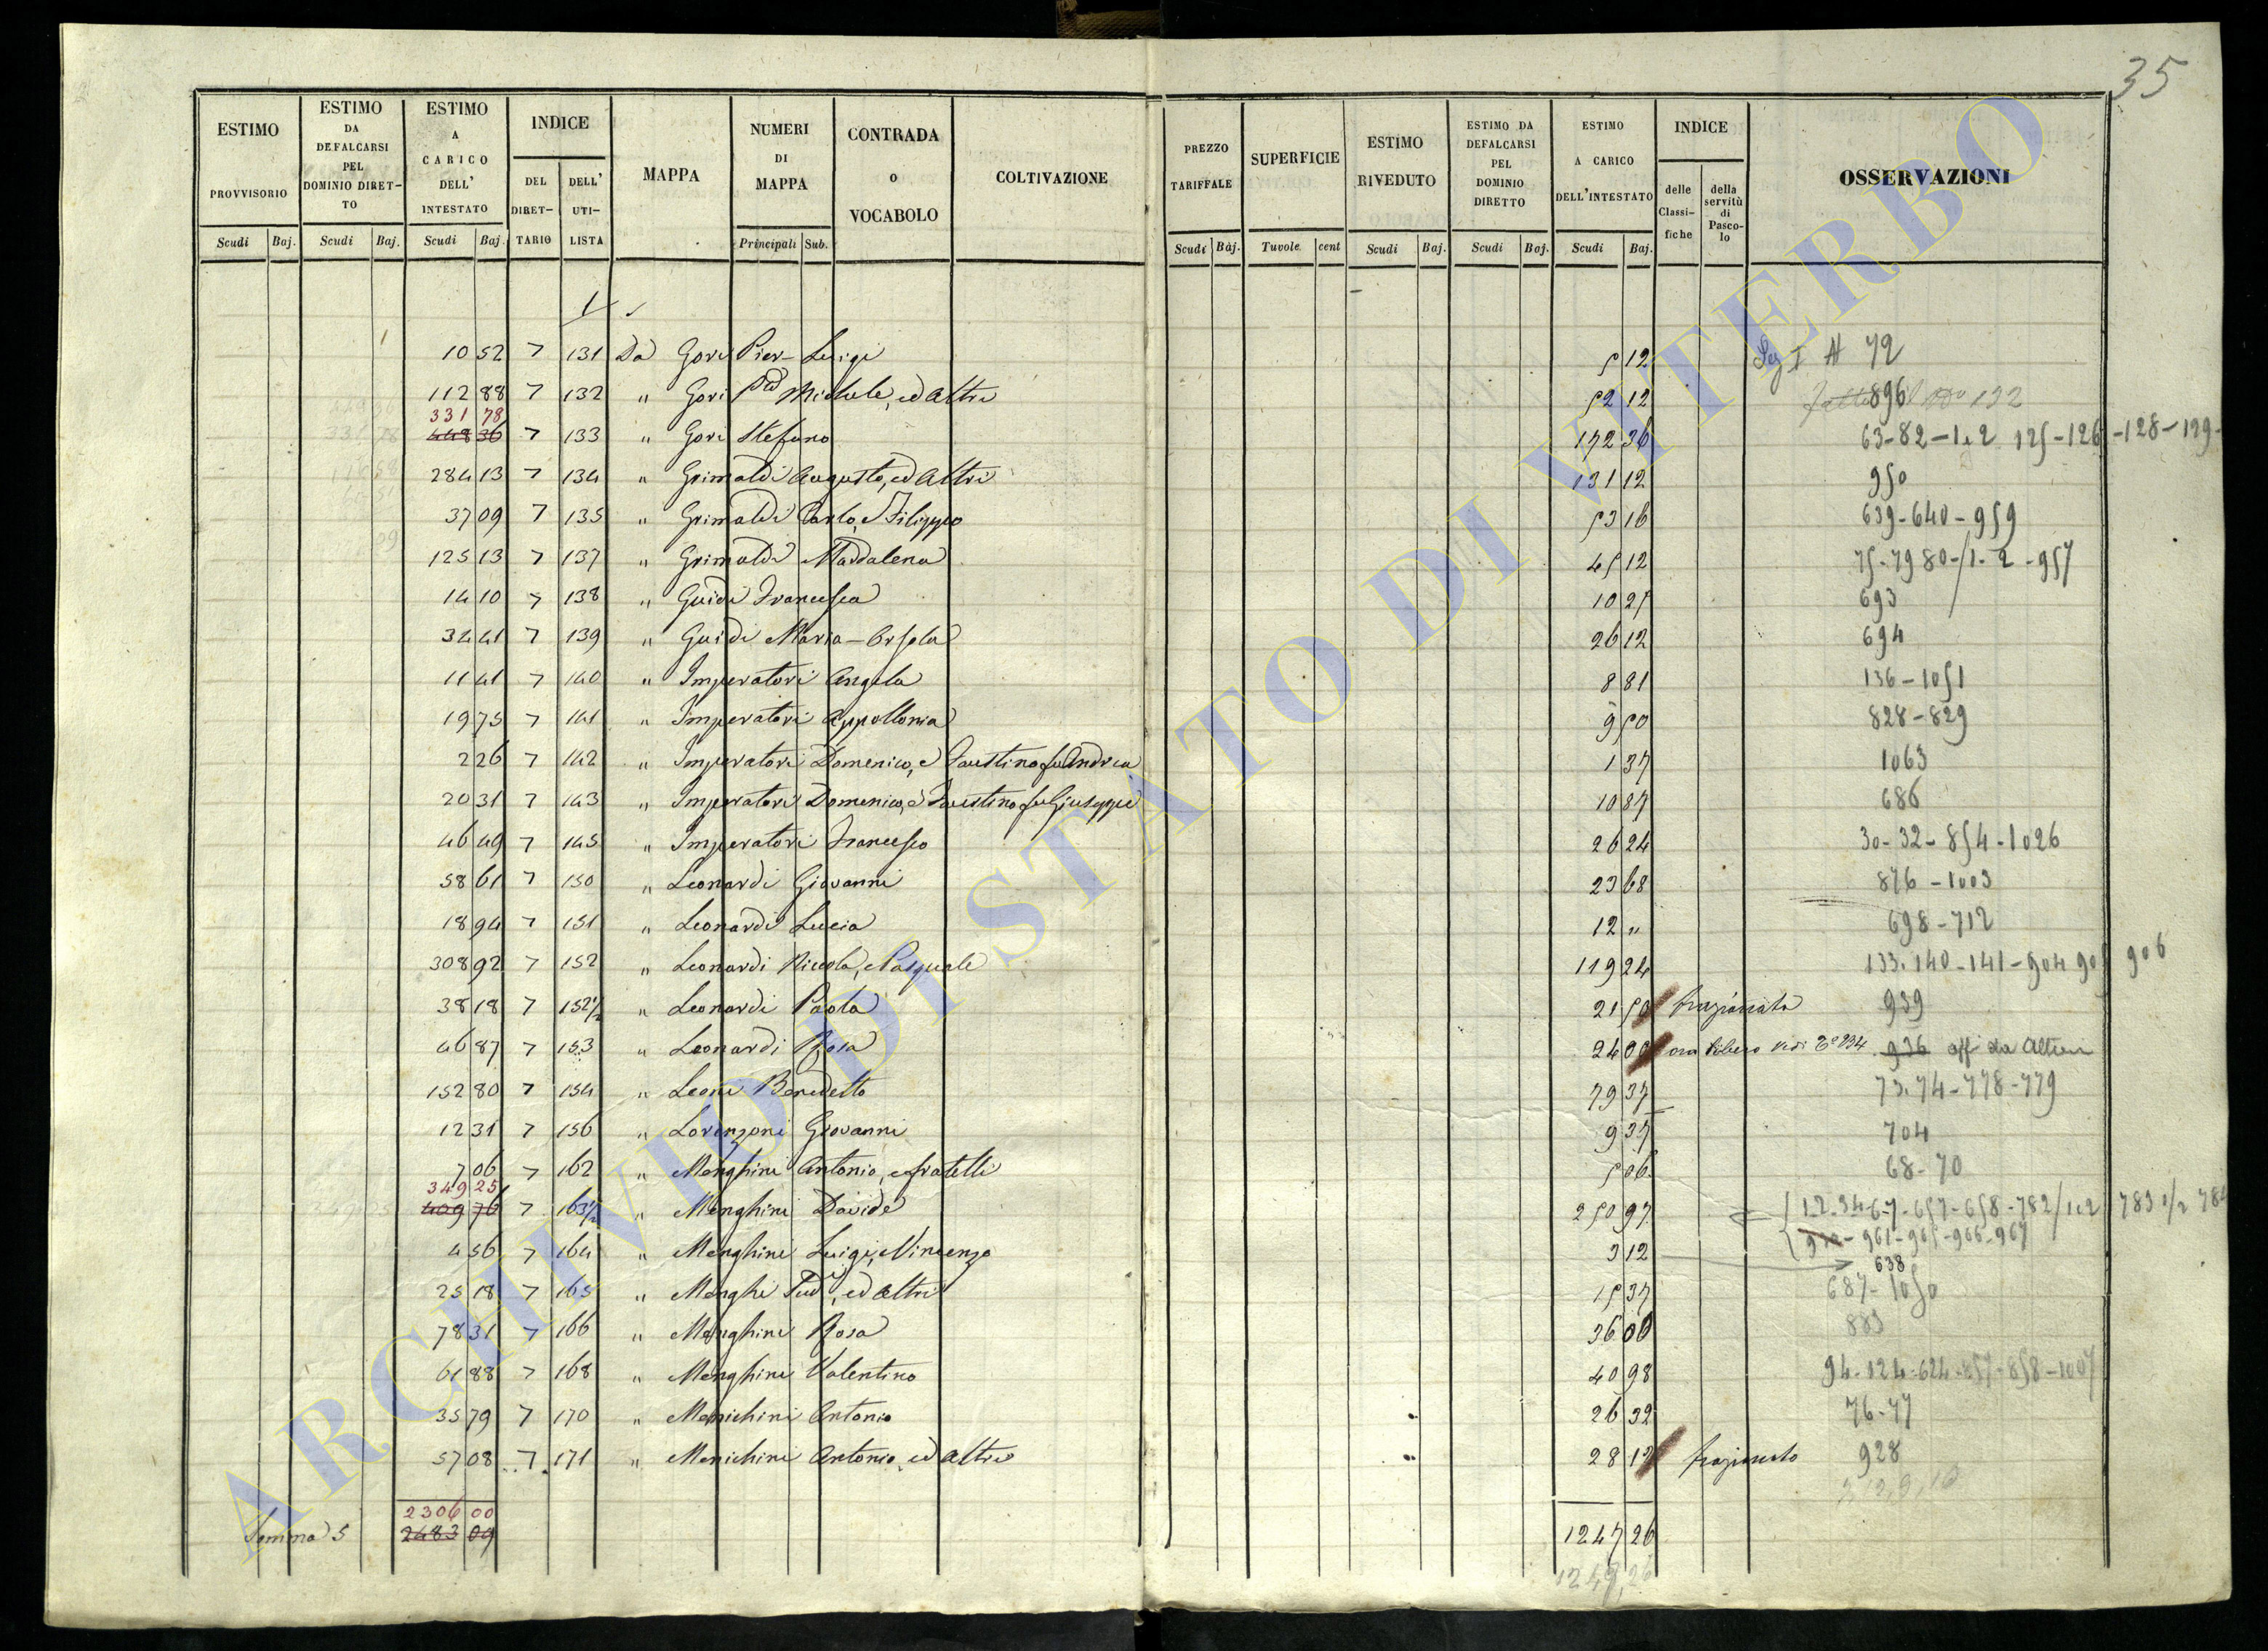 35
ESTIMO PROVVISORIO
ESTIMO DA DEFALCARSI PEL DOMINIO DIRET- TO
ESTIMO A CARICO DELL' INTESTATO
INDICE
DEL DIRET- TARIO
DELL' UTI- LISTA
MAPPA
NUMERI DI MAPPA
CONTRADA o VOCABOLO
COLTIVAZIONE
PREZZO TARIFFALE
SUPERFICIE
ESTIMO RIVEDUTO
ESTIMO DA DEFALCARSI PEL DOMINIO DIRETTO
ESTIMO A CARICO DELL'INTESTATO
INDICE
delle Classi- fiche
della servitù di Pasco- lo
OSSERVAZIONI
Scudi Baj. Scudi Baj. Scudi Baj. Principali Sub. Scudi Baj. Tavole cent Scudi Baj. Scudi Baj. Scudi Baj.
1
10 52 7 131 Da Gori Pier-Luigi 5 12 N 72
112 88 7 132 " Gori Michele, ed altri 52 12 896 132
331 78
448 36 7 133 " Gori Stefano 172 36 63-82-1.2 125-126-128-129-
284 13 7 134 " Grimaldi Augusto, ed altri 131 12 950
37 09 7 135 " Grimaldi Carlo, e Filippo 53 16 639-640-959
125 13 7 137 " Grimaldi Maddalena 45 12 75-79 80-/1-2-957
14 10 7 138 " Guidi Francesca 10 25 693
34 41 7 139 " Guidi Maria-Orsola 26 12 694
11 41 7 140 " Imperatori Angela 8 81 136-1051
19 75 7 141 " Imperatori Appollonia 9 50 828-829
2 26 7 142 " Imperatori Domenico, e Faustino fu Andrea 1 37 1063
20 31 7 143 " Imperatori Domenico, e Faustino fu Giuseppe 10 87 686
46 49 7 145 " Imperatori Francesco 26 24 30-32-854-1026
58 61 7 150 " Leonardi Giovanni 23 68 876-1003
18 94 7 151 " Leonardi Lucia 12 " 698-712
308 92 7 152 " Leonardi Nicola, e Pasquale 119 24 133.140-141-904 905 906
38 18 7 152½ " Leonardi Paola 21 50 frazionata 939
46 87 7 153 " Leonardi Rosa 24 00 ora libero 936
152 80 7 154 " Leoni Benedetto 79 37 73.74-778-779
12 31 7 156 " Lorenzoni Giovanni 9 37 704
7 06 7 162 " Menghini Antonio, e fratelli 5 06 68-70
349 25
409 76 7 163½ " Menghini Davide 250 97 1.2.34-67-657-658-782/1.2 783 1/2 784
961-965-966-967
4 56 7 164 " Menghini Luigi, e Vincenzo 3 12 638
25 18 7 165 " Menghi ed altri 15 37 687-1050
78 31 7 166 " Menghini Rosa 36 00 883
61 88 7 168 " Menghini Valentino 40 98 94-124-624-857-858-1007
35 79 7 170 " Menichini Antonio 26 32 76-77
57 08 7 171 " Menichini Antonio, ed altri 28 12 frazionato 928
2306 00
Somma S 2483 09 1247 26
1247,26
ARCHIVIO DI STATO DI VITERBO